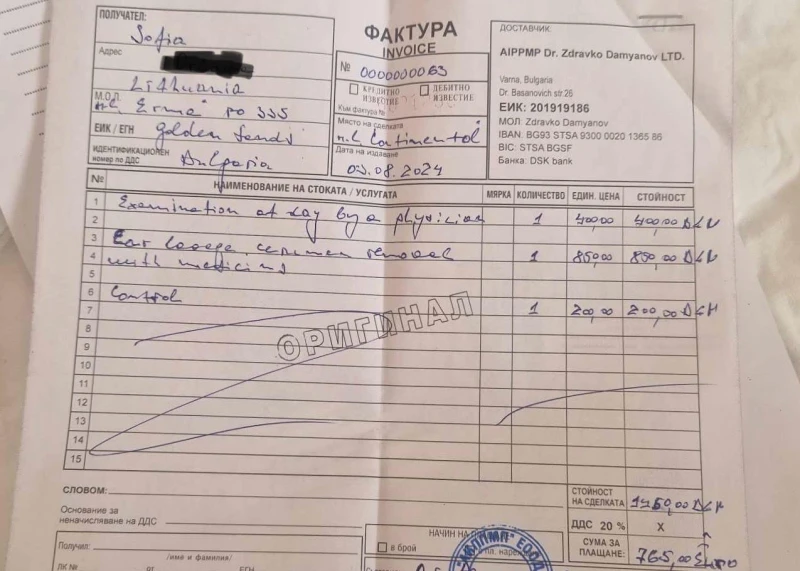 ПОЛУЧАТЕЛ:
Sofia
Адрес
Lithuania
М.О.Л.
"Erma" no 335
ЕИК / ЕГН
Golden Sands
ИДЕНТИФИКАЦИОНЕН
номер по ДДС
Bulgaria
ФАКТУРА
INVOICE
№ 0000000063
КРЕДИТНО ИЗВЕСТИЕ
ДЕБИТНО ИЗВЕСТИЕ
Към фактура №
Място на сделката
Continental
Дата на издаване
03.08.2024
ДОСТАВЧИК
AIPPMP Dr. Zdravko Damyanov LTD.
Varna, Bulgaria
Dr. Basanovich str 26
ЕИК: 201919186
МОЛ: Zdravko Damyanov
IBAN: BG93 STSA 9300 0020 1365 86
BIC: STSA BGSF
Банка: DSK bank
№ НАИМЕНОВАНИЕ НА СТОКАТА / УСЛУГАТА МЯРКА КОЛИЧЕСТВО ЕДИН. ЦЕНА СТОЙНОСТ
1 Examination at day by a physician 1 400,00 400,00
2
3 Ear cerumen removal
4 with medicins 1 850,00 850,00
5
6 Control
7 1 200,00 200,00
ОРИГИНАЛ
8
9
10
11
12
13
14
15
СЛОВОМ:
СТОЙНОСТ
НА СДЕЛКАТА 1450,00
Основание за
неначисляване на ДДС
ДДС 20 % X
СУМА ЗА
ПЛАЩАНЕ: 765,00 Euro
Получил:
/име и фамилия/
ЛК № от ЕГН
НАЧИН НА
в брой